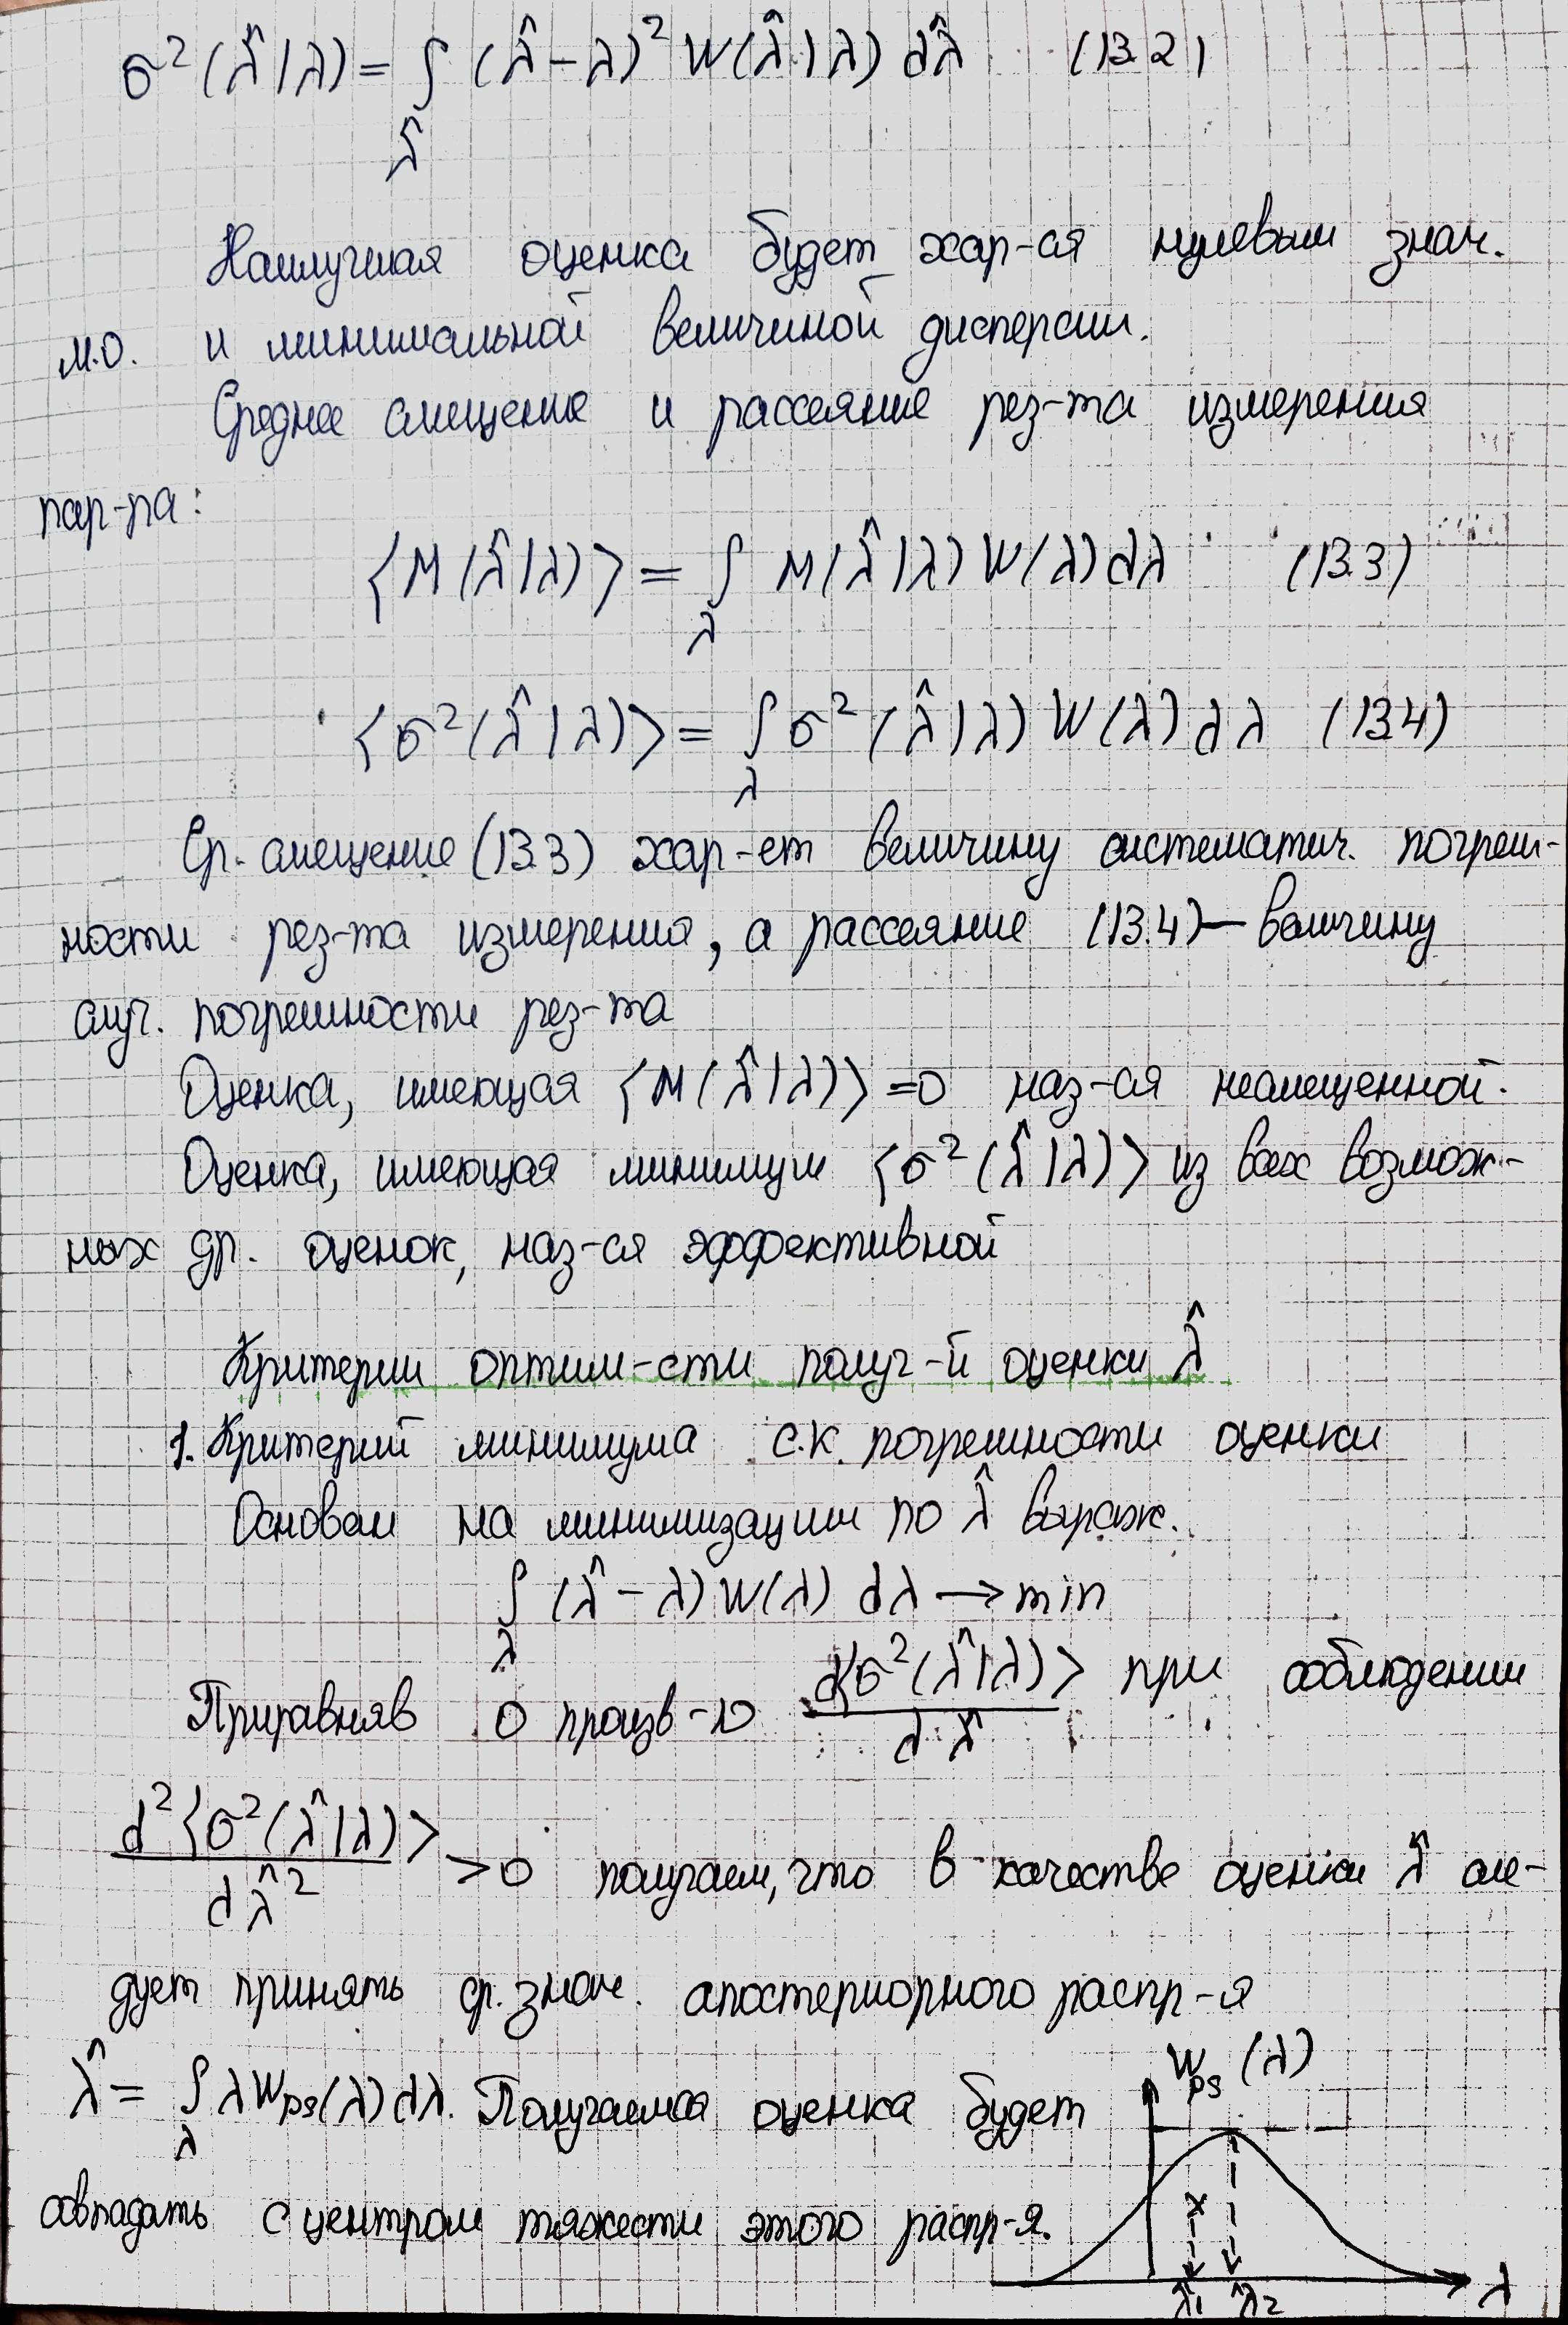 σ²(λ̂|λ) = ∫ (λ̂ - λ)² W(λ̂|λ) dλ̂ (13.2)
λ̂
Наилучшая оценка будет хар-ся нулевым знач.
М.О. и минимальной величиной дисперсии.
Среднее смещение и рассеяние рез-та измерения
пар-ра:
⟨M(λ̂|λ)⟩ = ∫ M(λ̂|λ) W(λ) dλ (13.3)
λ
⟨σ²(λ̂|λ)⟩ = ∫ σ²(λ̂|λ) W(λ) dλ (13.4)
λ
Ср. смещение (13.3) хар-ет величину систематич. погреш-
ности рез-та измерения, а рассеяние (13.4) — величину
случ. погрешности рез-та
Оценка, имеющая ⟨M(λ̂|λ)⟩ = 0 наз-ся несмещенной.
Оценка, имеющая минимум ⟨σ²(λ̂|λ)⟩ из всех возмож-
ных др. оценок, наз-ся эффективной
Критерии оптим-сти получ-й оценки λ̂
1. Критерий минимума с.к. погрешности оценки
Основан на минимизации по λ̂ выраж.
∫ (λ̂ - λ) W(λ) dλ → min
λ
Приравняв 0 произв-ю d⟨σ²(λ̂|λ)⟩ / dλ̂ при соблюдении
d²⟨σ²(λ̂|λ)⟩ / dλ̂² > 0 получаем, что в качестве оценки λ̂ сле-
дует принять ср. знач. апостериорного распр-я
λ̂ = ∫ λ Wps(λ) dλ. Получаемая оценка будет
λ
совпадать с центром тяжести этого распр-я.
Wps(λ)
λ
λ̂1 λ̂2